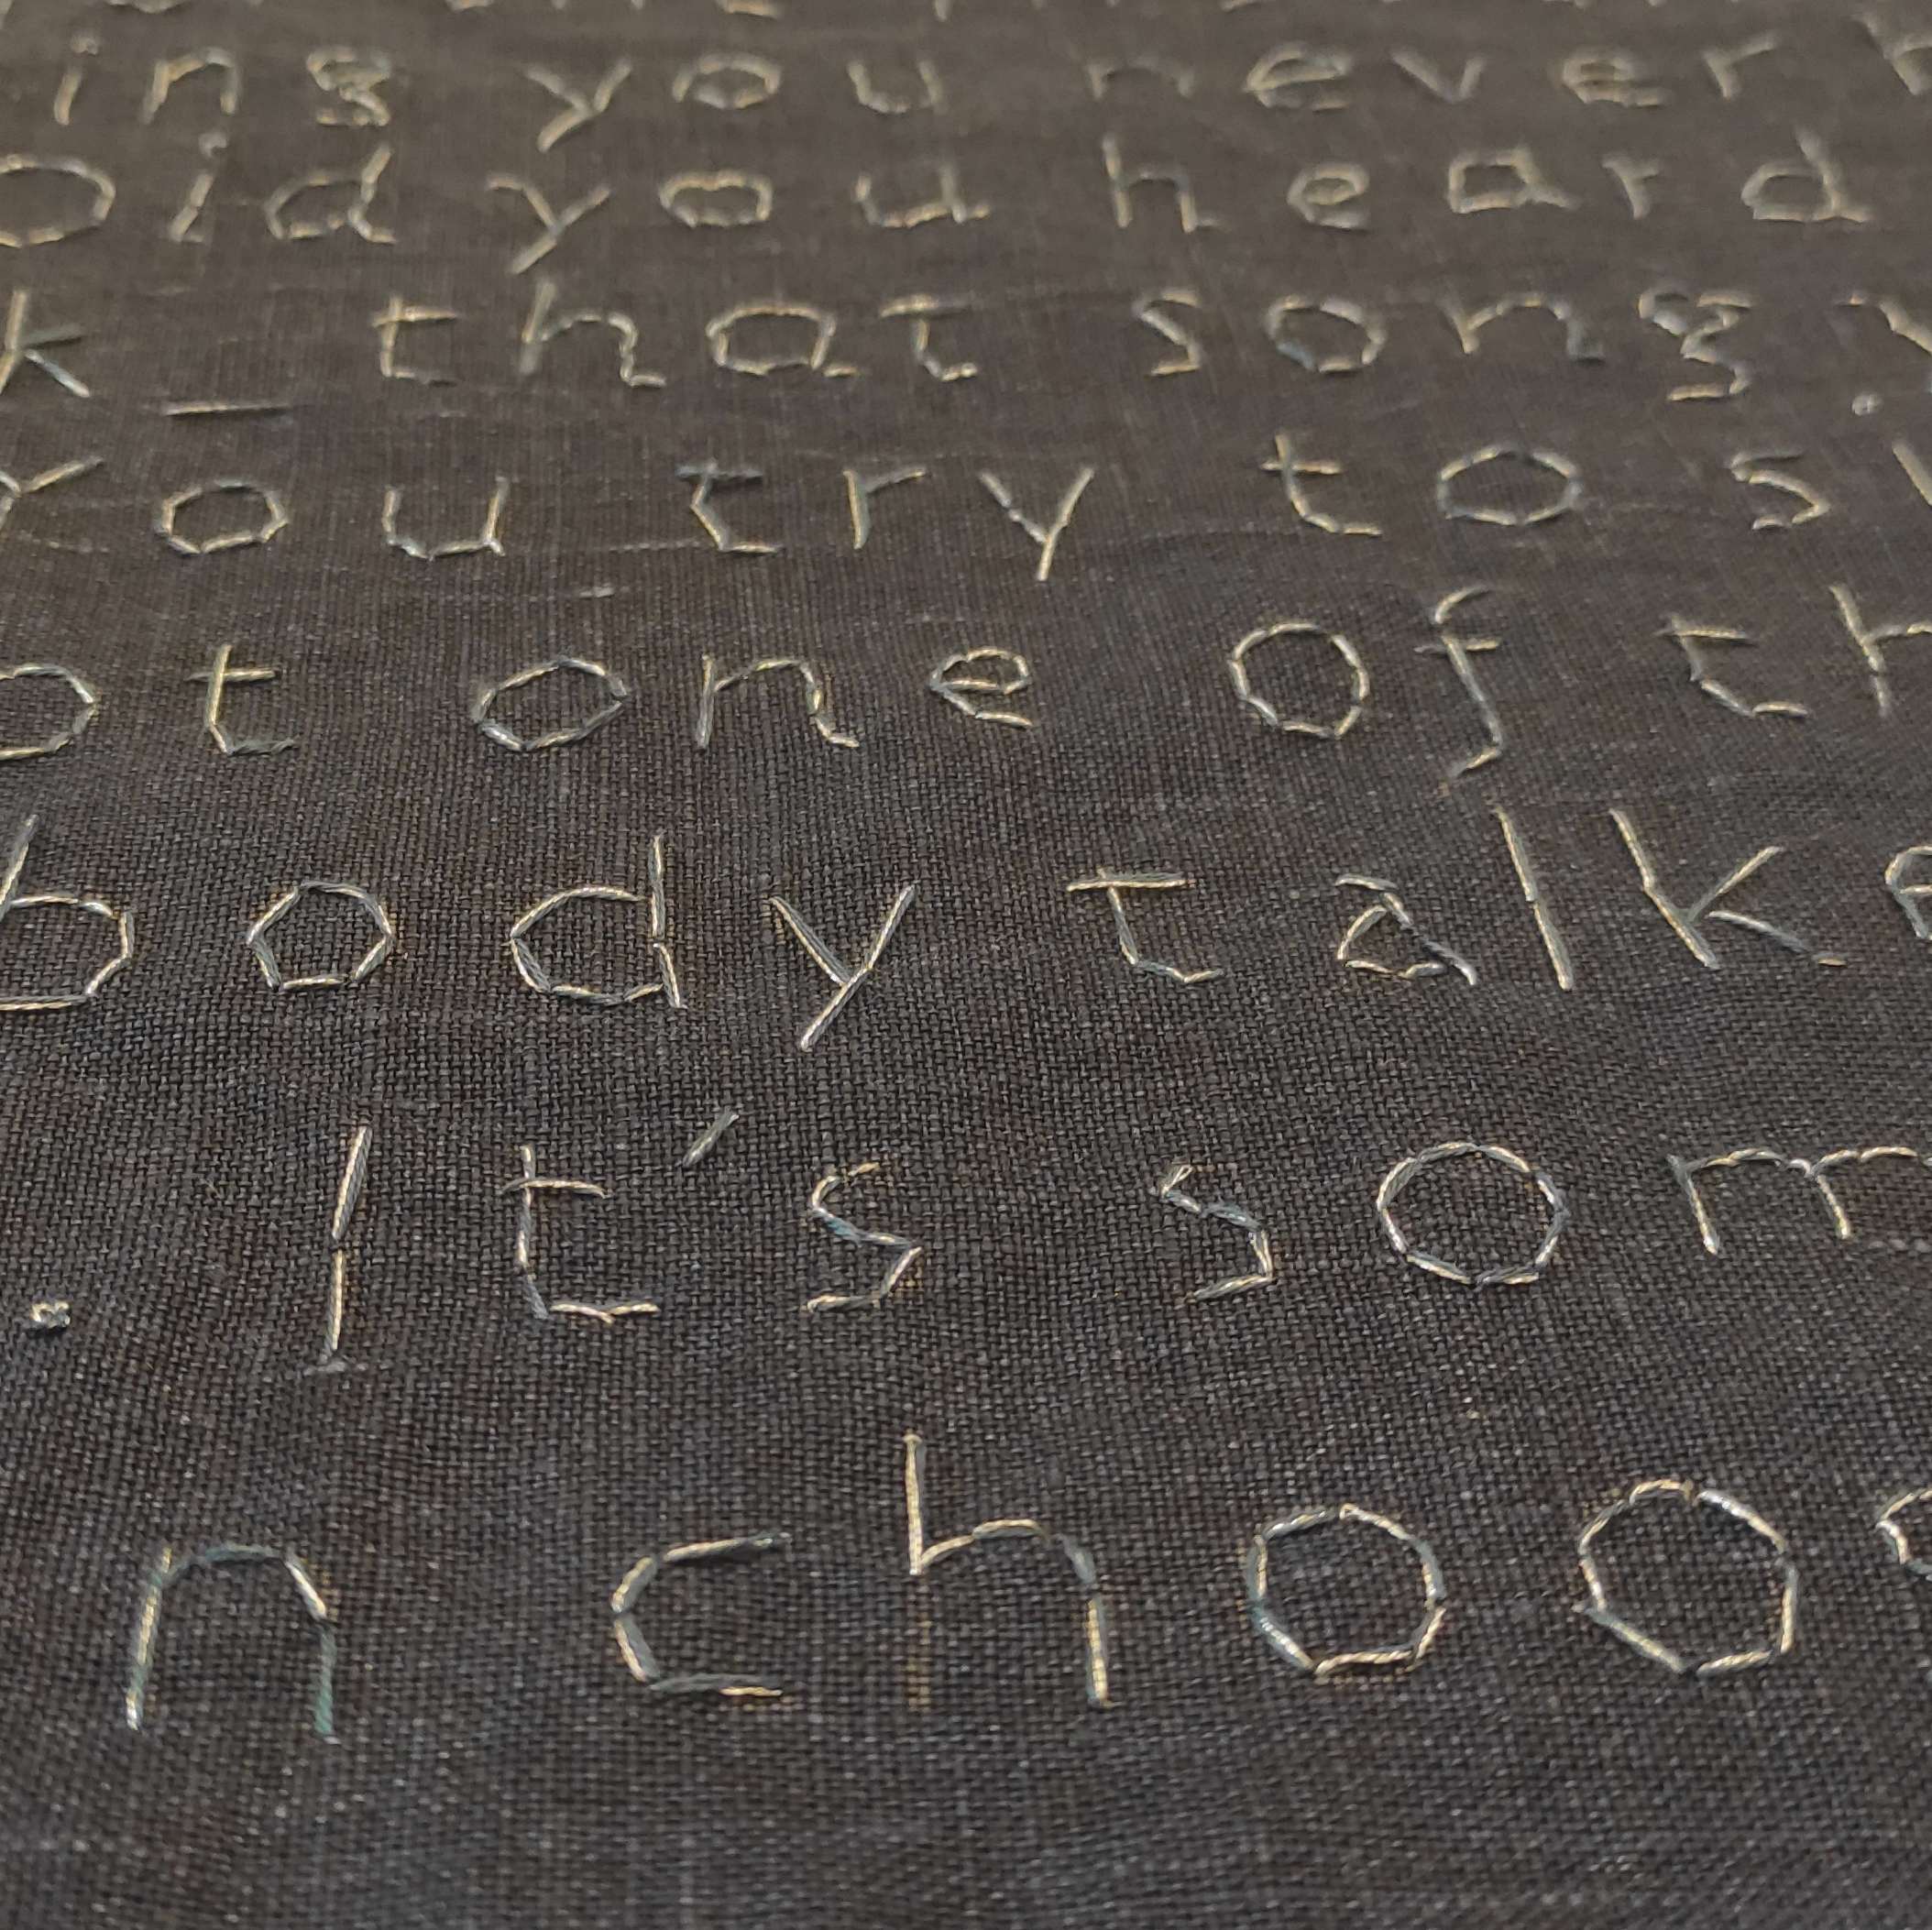 ing you never h
oid you heard
k_ that song.
you try to sl
ot one of th
body talke
. It's som
n choos